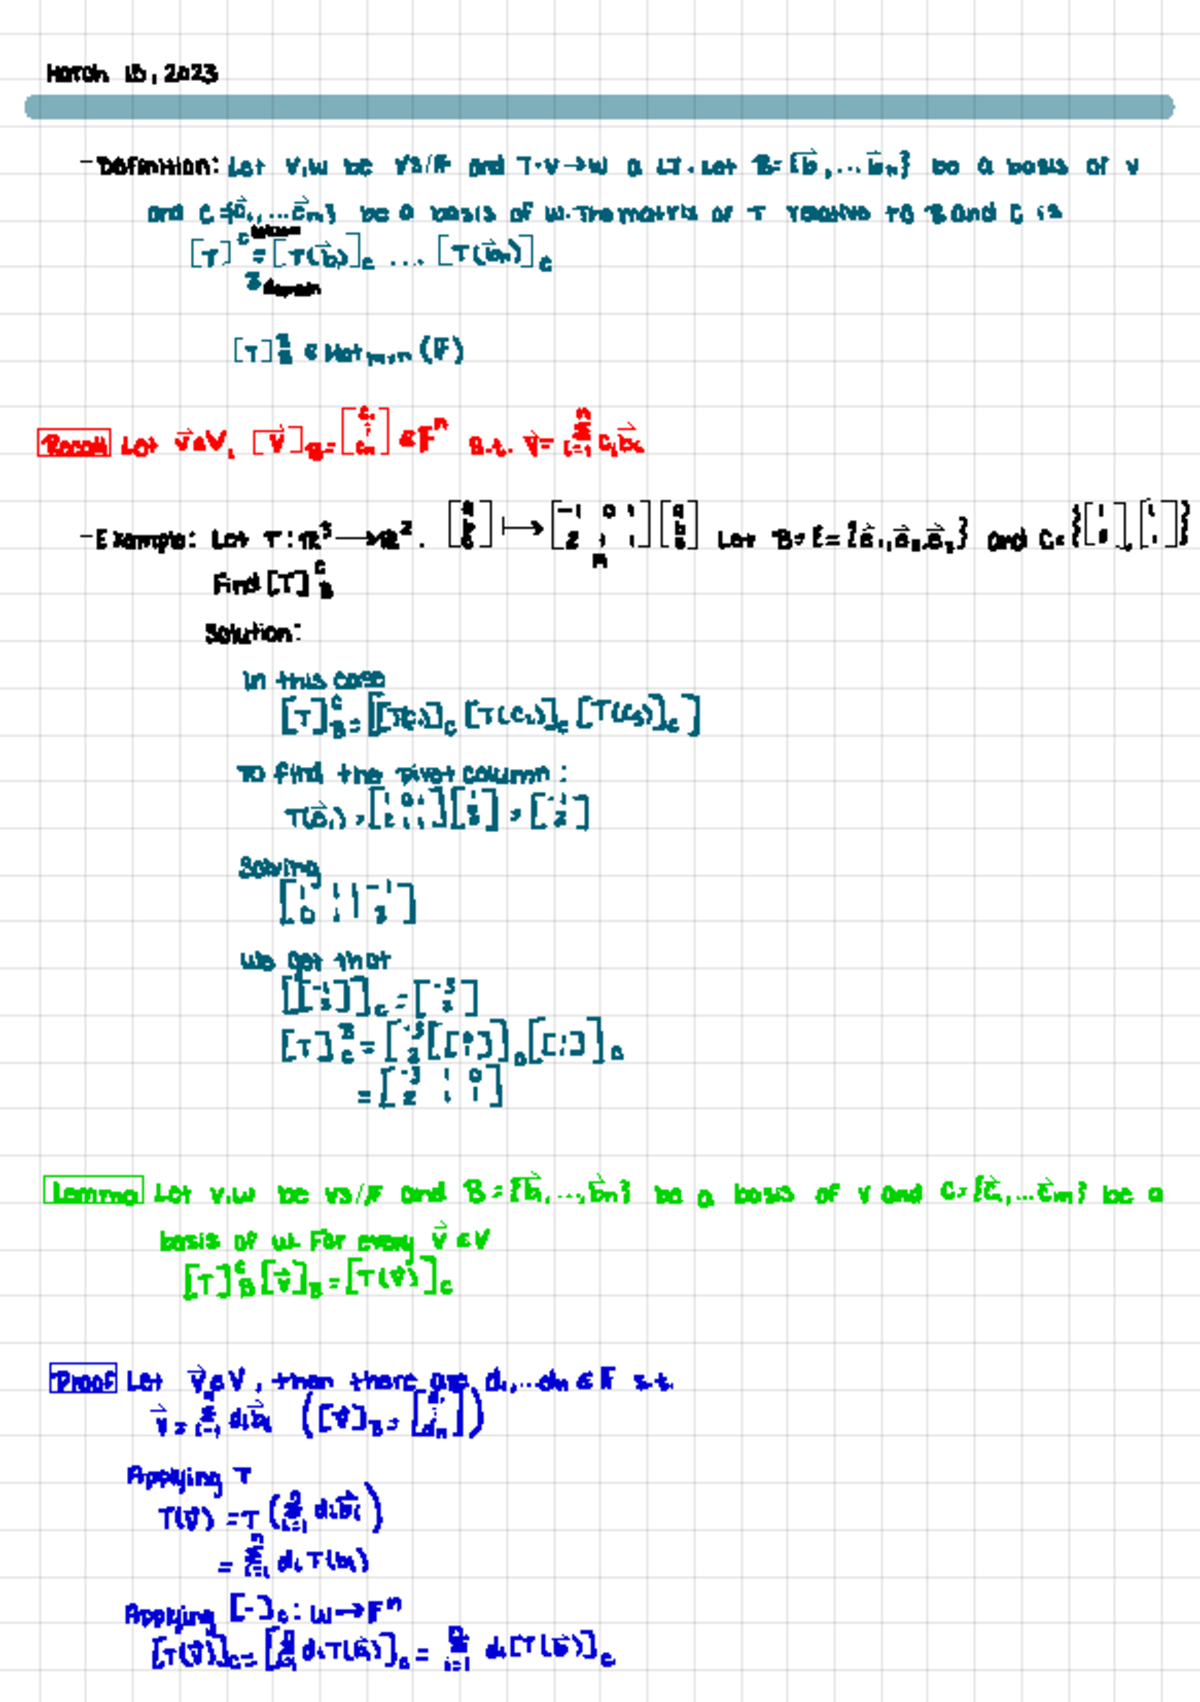 March 15, 2023
- Definition: Let V, W be VS/F and T: V → W a LT. Let B = {b⃗₁, ... b⃗ₙ} be a basis of V
and C = {c⃗₁, ... c⃗ₘ} be a basis of W. The matrix of T relative to B and C is
[T]ᶜ = [T(b⃗)]_C ... [T(b⃗ₙ)]_C
B domain
[T] ∈ Mat ₘₓₙ (F)
Recall Let v⃗ ∈ V, [v⃗]_B = [c₁ ⋮ cₙ] ∈ Fⁿ s.t. v⃗ = Σⁿᵢ₌₁ cᵢb⃗ᵢ
- Example: Let T: R³ → R². [a b c] ↦ [-1 0 1; 2 1 1] [a b c] Let B = E = {e⃗₁, e⃗₂, e⃗₃} and C = {[1 0], [1 1]}
Find [T]ᶜ_B
Solution:
In this case
[T]ᶜ_B = [[T(e₁)]_C [T(e₂)]_C [T(e₃)]_C]
To find the pivot column:
T(e⃗₁) = [-1 0 1; 2 1 1] [1 0 0] = [-1 2]
Solving
[1 1 | -1; 0 1 | 2]
We get that
[[-1 2]]_C = [-3 2]
[T]ᴮ_C = [-3 2 [[0 1]] [[1 1]]
= [-3 1 0; 2 1 1]
Lemma Let V, W be VS/F and B = {b⃗₁, ..., b⃗ₙ} be a basis of V and C = {c⃗₁, ... c⃗ₘ} be a
basis of W. For every v⃗ ∈ V
[T]ᶜ_B [v⃗]_B = [T(v⃗)]_C
Proof Let v⃗ ∈ V, then there are d₁, ... dₙ ∈ F s.t.
v⃗ = Σⁿᵢ₌₁ dᵢb⃗ᵢ ([v⃗]_B = [d₁ ⋮ dₙ])
Applying T
T(v⃗) = T (Σⁿᵢ₌₁ dᵢb⃗ᵢ)
= Σⁿᵢ₌₁ dᵢ T(bᵢ)
Applying [-]_C : W → Fⁿ
[T(v⃗)]_C = [Σⁿᵢ₌₁ dᵢT(b⃗ᵢ)]_C = Σⁿᵢ₌₁ dᵢ[T(b⃗)]_C